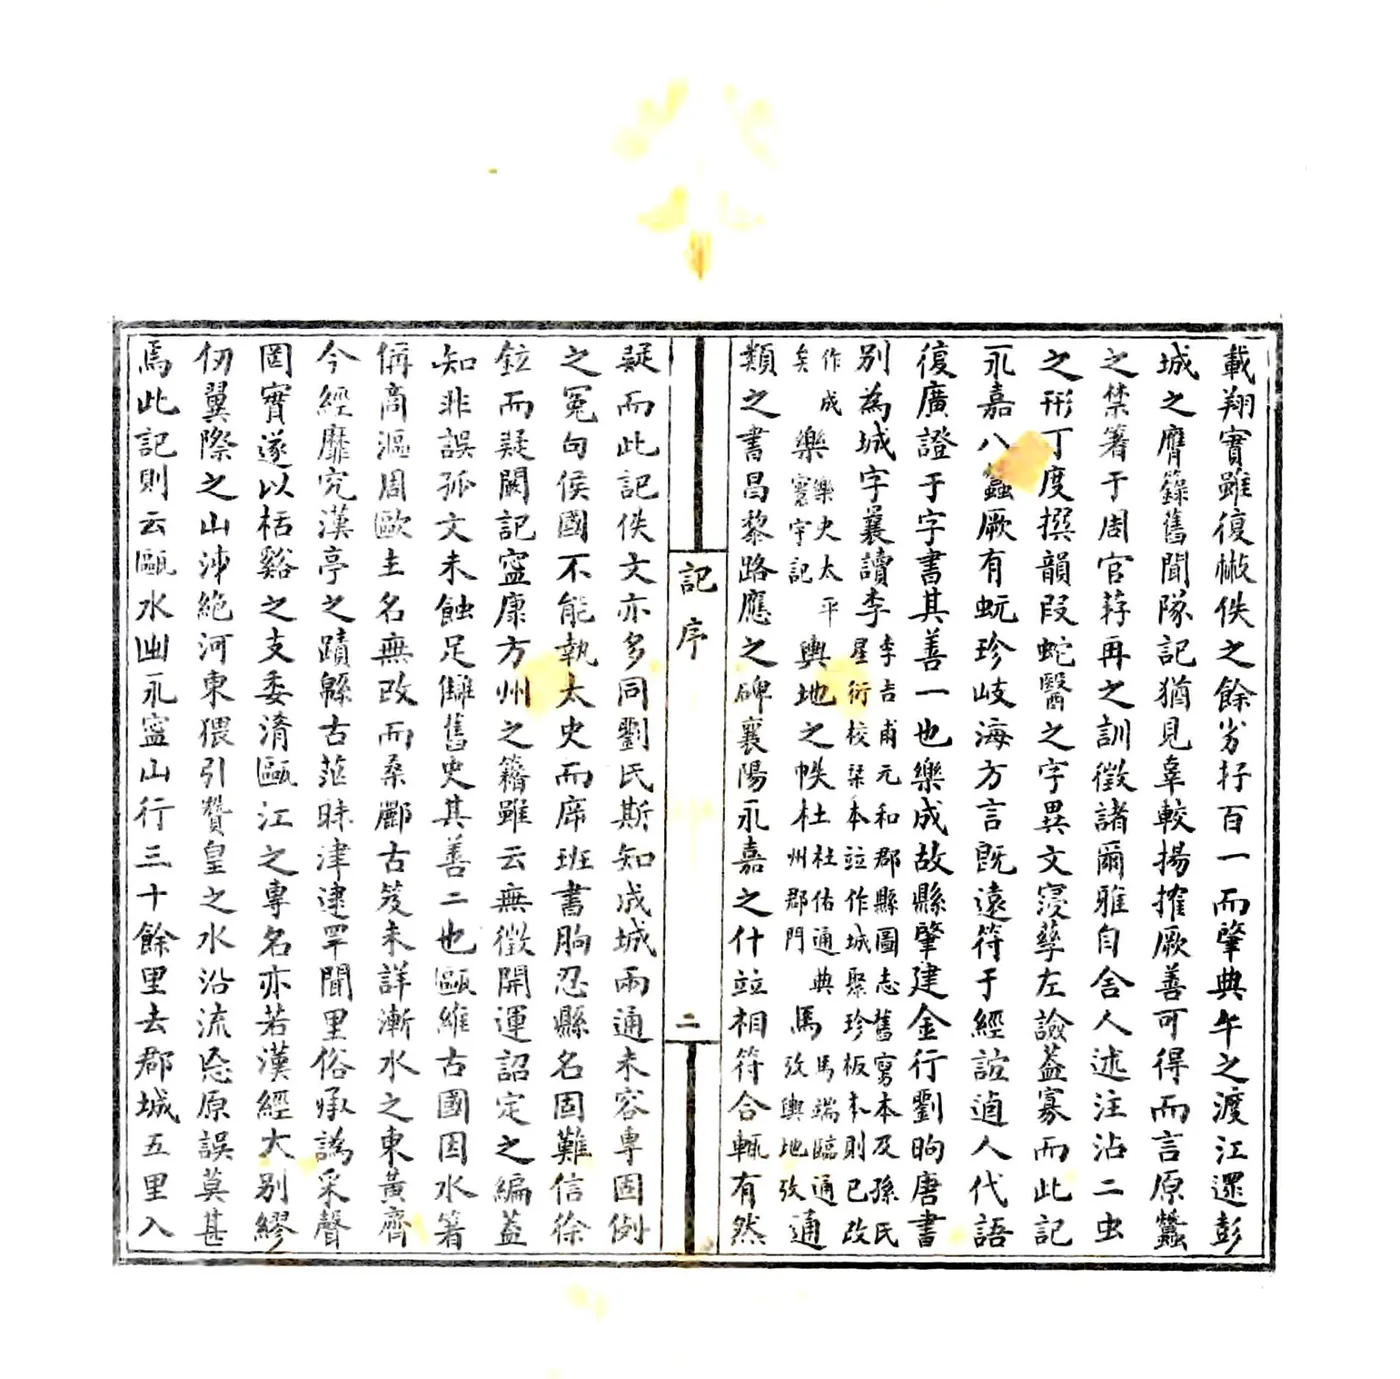 載翔實雖復㡀佚之餘劣抒百一而肇典午之渡江還彭
城之膺籙舊聞隊記猶見辜較揚搉厥善可得而言原蠶
之禁箸于周官荐再之訓徵諸爾雅自舍人述注沾二虫
之形丁度撰韻叚蛇醫之字異文寖孳左譣葢寡而此記
永嘉八蠶厥有蚖珍岐海方言既遠符于經誼遒人代語
復廣證于字書其善一也樂成故縣肇建金行劉昫唐書
別為城字襄讀李李吉甫元和郡縣圖志舊寫本及孫氏星衍校栞本竝作城聚珍板本則已改
作成矣樂樂史太平寰宇記輿地之帙杜杜佑通典州郡門馬馬端臨通攷輿地攷通
類之書昌黎路應之碑襄陽永嘉之什竝相符合輒有然
記序
二
疑而此記佚文亦多同劉氏斯知成城兩通未容專固例
之冤句侯國不能執太史而席班書朐忍縣名固難信徐
鉉而疑闕記寍康方州之籍雖云無徵開運詔定之編葢
知非誤孤文未蝕足讎舊史其善二也甌維古國因水箸
偁商漚周歐主名無改而桑酈古笈未詳漸水之東黃齊
今經靡究漢亭之蹟緜古茫昧津逮罕聞里俗承譌采聲
罔實遂以栝谿之支委淆甌江之專名亦若漢經大別繆
仞翼際之山泲絶河東猥引贊皇之水沿流忘原誤莫甚
焉此記則云甌水出永寍山行三十餘里去郡城五里入